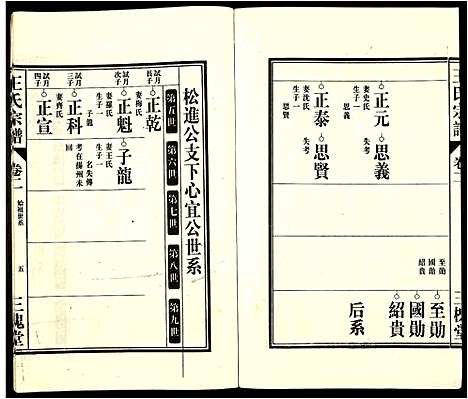 王氏宗譜
卷二
三槐堂
正元
妻史氏
生子一
思義
思義
失考
正泰
妻沈氏
生子一
思賢
思賢
失考
至勋
國勋
紹貴
至勋
國勋
紹貴
后系
松進公支下心宜公世系
第五世
第六世
第七世
第八世
第九世
試月
長子
正乾
妻梅氏
試月
次子
正魁
妻羅氏
生子一
子龍
子龍
妻王氏
生子一
名失傳
考在揚州未
回
試月
三子
正科
試月
四子
正宣
妻齊氏
王氏宗譜
卷二
始祖世系
五
三槐堂